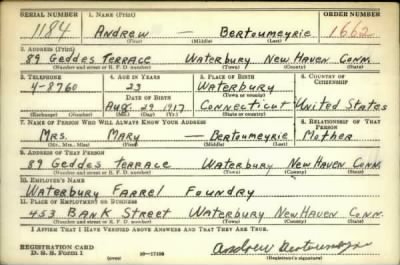 SERIAL NUMBER 1. NAME (Print) ORDER NUMBER
1184 ANDREW — BERTOUMEYRIE 1662
(First) (Middle) (Last)
2. ADDRESS (Print)
89 GEDDES TERRACE WATERBURY NEW HAVEN CONN.
(Number and street or R. F. D. number) (Town) (County) (State)
3. TELEPHONE 4. AGE IN YEARS 5. PLACE OF BIRTH 6. COUNTRY OF CITIZENSHIP
4-8760 23 WATERBURY
DATE OF BIRTH (Town or county)
AUG. 29 1917 CONNECTICUT UNITED STATES
(Exchange) (Number) (Mo.) (Day) (Yr.) (State or country)
7. NAME OF PERSON WHO WILL ALWAYS KNOW YOUR ADDRESS 8. RELATIONSHIP OF THAT PERSON
MRS. MARY — BERTOUMEYRIE MOTHER
(Mr., Mrs., Miss) (First) (Middle) (Last)
9. ADDRESS OF THAT PERSON
89 GEDDES TERRACE WATERBURY NEW HAVEN CONN.
(Number and street or R. F. D. number) (Town) (County) (State)
10. EMPLOYER'S NAME
WATERBURY FARREL FOUNDRY
11. PLACE OF EMPLOYMENT OR BUSINESS
453 BANK STREET WATERBURY NEW HAVEN CONN.
(Number and street or R. F. D. number) (Town) (County) (State)
I AFFIRM THAT I HAVE VERIFIED ABOVE ANSWERS AND THAT THEY ARE TRUE.
REGISTRATION CARD
D. S. S. Form 1 (over) Andrew
(Registrant's signature)